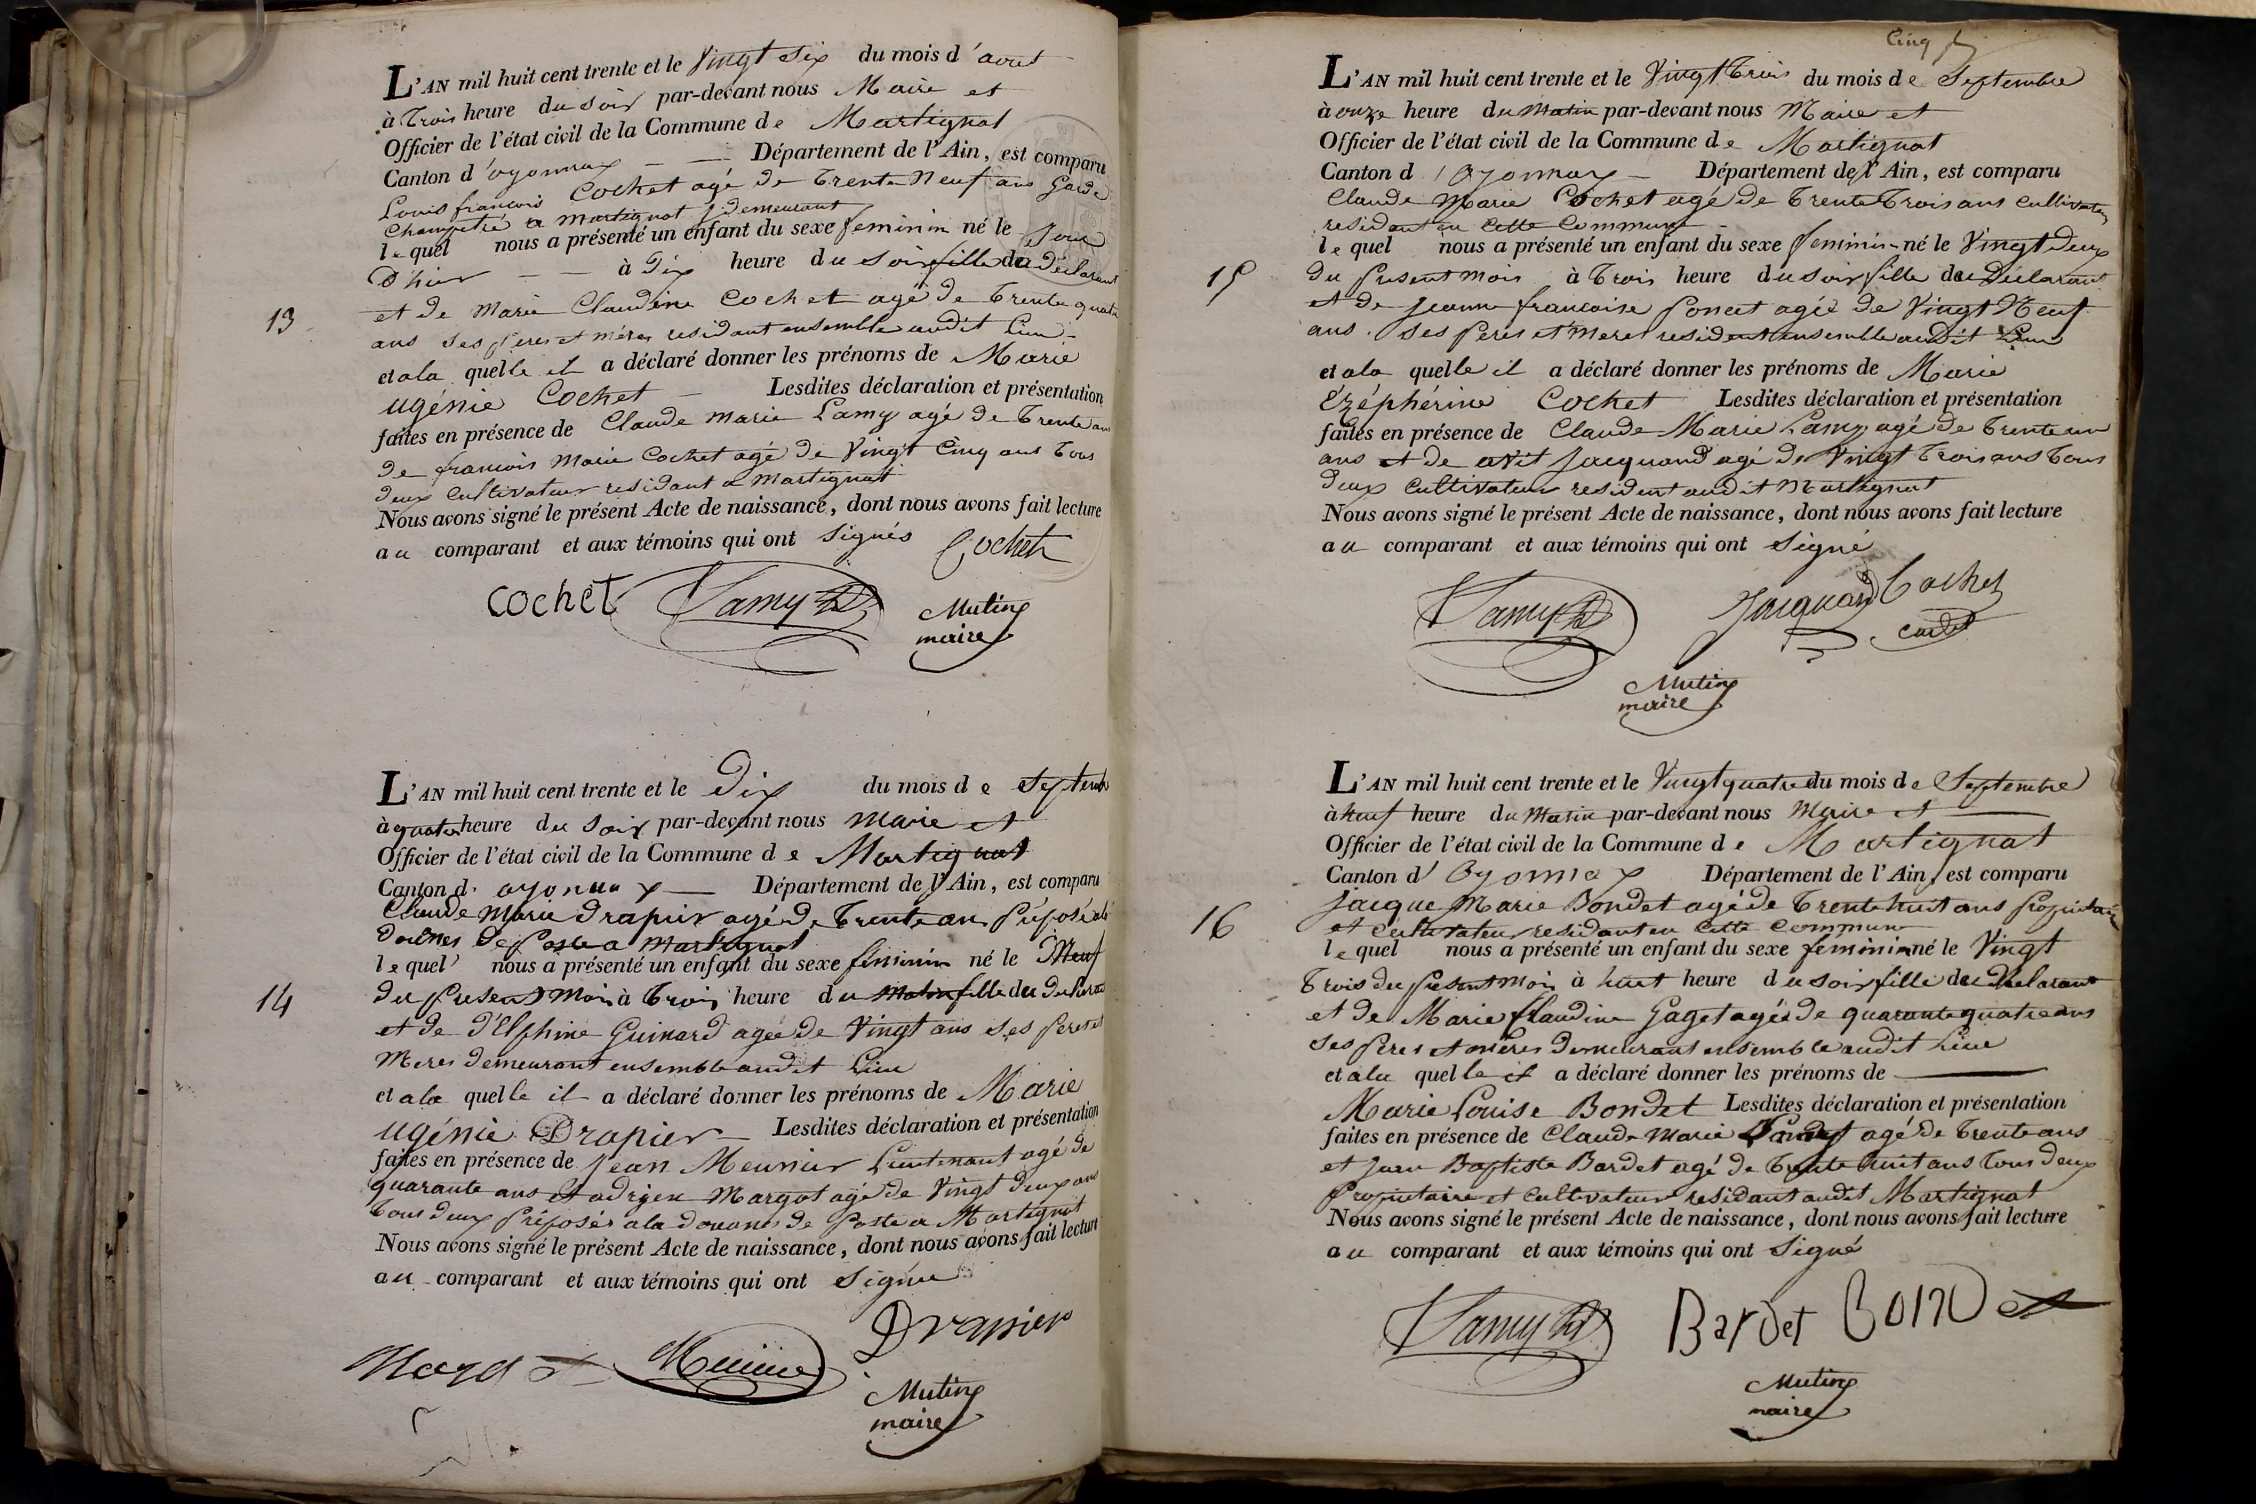 L'AN mil huit cent trente et le Vingt Six du mois d'aout
à Trois heure du soir par-devant nous Maire et
Officier de l'état civil de la Commune de Martignat
Canton d'oyonnax Département de l'Ain, est comparu
Louis francois Cochet agé de Trente Neuf ans Garde
Champetre a Martignat y demeurant
lequel nous a présenté un enfant du sexe feminin né le Jour
D'hier à Dix heure du soir fille du déclarant
13
et de Marie Claudine Cochet agé de Trente quatre
ans ses peres et méres residant ensemble audit lieu
et a la quelle il a déclaré donner les prénoms de Marie
ugénie Cochet Lesdites déclaration et présentation
faites en présence de Claude Marie Lamy agé de Trente ans
de francois Marie Cochet agé de Vingt Cinq ans Tous
deux Cultivateur residant a Martignat
Nous avons signé le présent Acte de naissance, dont nous avons fait lecture
au comparant et aux témoins qui ont Signés Cochet
cochet Lamy Mutin
maire
L'AN mil huit cent trente et le Dix du mois de Septembre
à quatre heure du Soir par-devant nous Maire et
Officier de l'état civil de la Commune de Martignat
Canton d'oyonnax Département de l'Ain, est comparu
Claude Marie Drapier agé de Trente ans Préposé de
douanes de Poste a Martignat
lequel nous a présenté un enfant du sexe feminin né le Neuf
14
du present Mois à Trois heure du Matin fille du declarant
et de d'Elphine Guinard agée de Vingt ans ses peres et
Meres demeurant ensemble audit Lieu
et a la quelle il a déclaré donner les prénoms de Marie
ugénie Drapier Lesdites déclaration et présentation
faites en présence de Jean Meunier Lieutenant agé de
quarante ans et adrien Margot agé de Vingt deux ans
Tous deux Préposés a la douanes de Poste a Martignat
Nous avons signé le présent Acte de naissance, dont nous avons fait lecture
au comparant et aux témoins qui ont Signé
Drapier
Meunier
Mutin
maire
Cinq
L'AN mil huit cent trente et le Vingt Trois du mois de Septembre
à onze heure du Matin par-devant nous Maire et
Officier de l'état civil de la Commune de Martignat
Canton d'Oyonnax Département de l'Ain, est comparu
Claude Marie Cochet agé de Trente Trois ans Cultivateur
residant en Cette Commune
lequel nous a présenté un enfant du sexe feminin né le Vingt deux
15
du present Mois à Trois heure du soir fille du Déclarant
et de Jeanne francoise Poncet agée de Vingt Neuf
ans ses peres et Meres resident ensemble audit Lieu
et a la quelle il a déclaré donner les prénoms de Marie
Ézéphérine Cochet Lesdites déclaration et présentation
faites en présence de Claude Marie Lamy agé de Trente un
ans et de avit Jacquand agé de Vingt Trois ans Tous
deux Cultivateur resident audit Martignat
Nous avons signé le présent Acte de naissance, dont nous avons fait lecture
au comparant et aux témoins qui ont Signé
Lamy Jacquand Cochet
Mutin
maire
L'AN mil huit cent trente et le Vingt quatre du mois de Septembre
à Neuf heure du Matin par-devant nous Maire et
Officier de l'état civil de la Commune de Martignat
Canton d'Oyonnax Département de l'Ain, est comparu
Jacque Marie Bondet agé de Trente huit ans Propriétaire
16
et Cultivateur residant en Cette Commune
lequel nous a présenté un enfant du sexe feminin né le Vingt
Trois du present Mois à huit heure du soir fille du declarant
et de Marie Claudine Gaget agée de quarante quatre ans
ses peres et méres demeurant ensemble audit Lieu
et a la quelle il a déclaré donner les prénoms de
Marie Louise Bondet Lesdites déclaration et présentation
faites en présence de Claude Marie agé de Trente ans
et Jean Baptiste Bardet agé de Trente huit ans Tous deux
Propriétaire et Cultivateur residant audit Martignat
Nous avons signé le présent Acte de naissance, dont nous avons fait lecture
au comparant et aux témoins qui ont Signé
Lamy Bardet Bondet
Mutin
maire